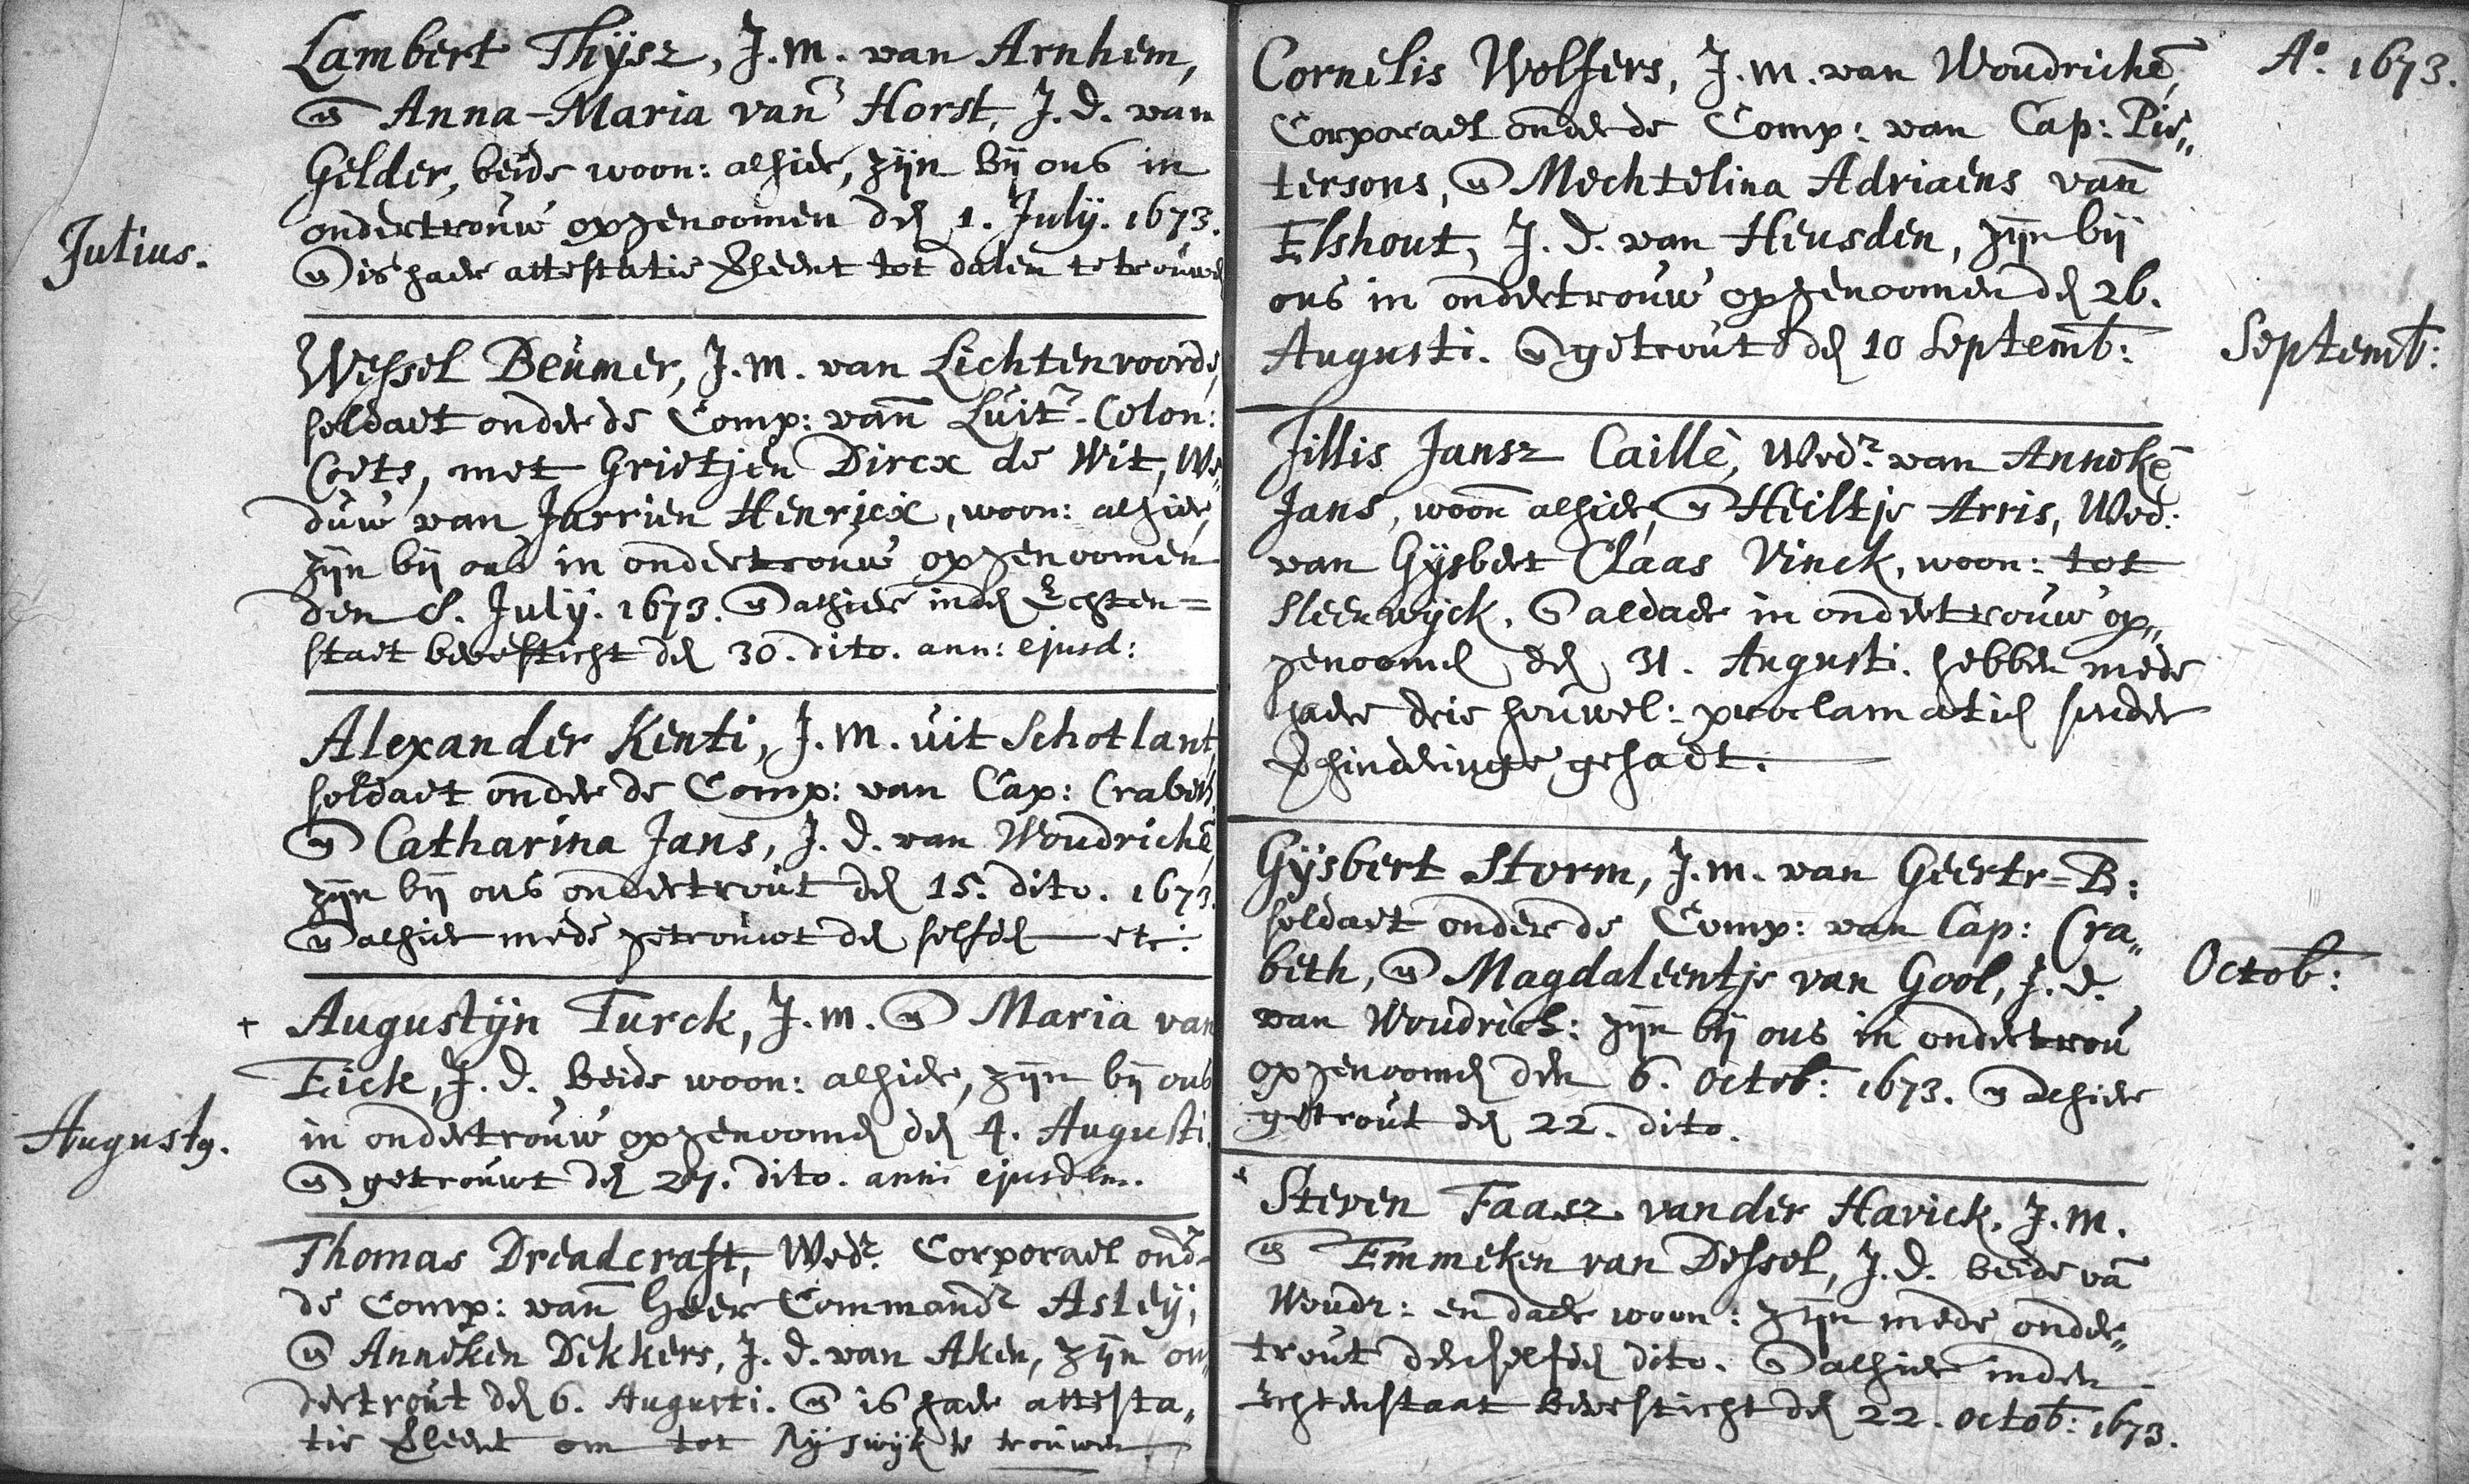 Lambert Thÿsz, J.M. van Arnhem,
en Anna-Maria van Horst, J.d. van
Gelder, beide woon: alhier, zijn bij ons in
Julius.
ondertrouw opgenoomen den 1. Julÿ. 1673.
en is haer attestatie verleent tot dalem te trouwen
Wessel Beumer, J.M. van Lichtenvoorde,
soldaet onder de Comp: van Luitr-Colon:
Coets, met Grietjen Dircx de Wit, We„
duw van Jurrien Henricx, woon: alhier,
zijn bij ons in ondertrouw opgenoomen
den 8. Julÿ. 1673. en alhier inden Echten=
staet bevesticht den 30. dito. ann: ejusd:
Alexander Kenti, J.M. uit Schotlant,
soldaet onder de Comp: van Cap: Crabeth,
en Catharina Jans, J.d. van Woudrichē,
zijn bij ons ondertrout den 15. dito. 1673.
en alhier mede getrouwt den selfden etc:
+ Augustijn Turck, J.M. en Maria van
Eick, J.d. beide woon: alhier, zijn bij ons
in ondertrouw opgenoomen den 4. Augusti.
Augustq.
en getrouwt den 27. dito. anni ejusdem.
Thomas Dreadcraft, Wedr. Corporael ond-
de Comp: van Heer Commandr Asleÿ,
en Anneken Dekkers, J.d. van Aken, zijn on„
dertrout den 6. Augusti. en is haer attesta„
tie verleent om tot Rÿswÿk te trouwen
Ao. 1673.
Cornelis Wolfers, J.M. van Woudrichē,
Corporael onder de Comp: van Cap: Pie„
tersons, en Mechtelina Adriaens van
Elshout, J.d. van Heusden, zijn bij
ons in ondertrouw opgenoomen den 26.
Augusti. en getrout den 10 Septemb:
Septemb:
Jillis Jansz Caillè, Wedr. van Annekē
Jans, woon alhier, en Heiltje Arris, Wed:
van Gÿsbert Claas Vinck, woon: tot
Sleeuwÿck. en aldaer in ondertrouw op„
genoomen den 31. Augusti. hebben mede
haer drie houwel: proclamatien sonder
verhinderinge gehadt.
Gÿsbert Storm, J.M. van Geertr=B:
soldaet onder de Comp: van Cap: Cra„
beth, en Magdaleentje van Gool, J.d.
Octob:
van Woudrich: zijn bij ons in ondertrou
opgenoomen den 6. Octob: 1673. en alhier
getrout den 22. dito.
+ Steven Faasz vander Havick. J.M.
en Emmeken van Dessel, J.d. beide vā
Woudr: en daer woon: zijn mede onder„
trout denselfden dito. en alhier inden
Echtenstaat bevesticht den 22. octob: 1673.